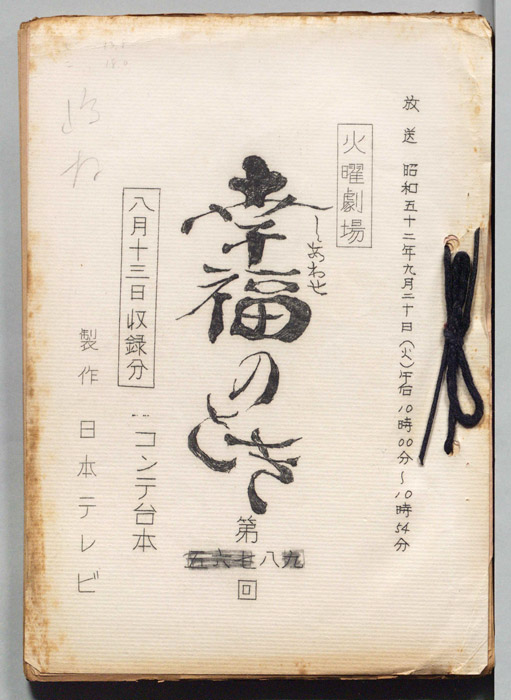 放送 昭和五十二年九月二十日(火)午后10時00分~10時54分
火曜劇場
しあわせ
幸福のとき
第
五六七八九
回
八月十三日収録分
コンテ台本
製作 日本テレビ